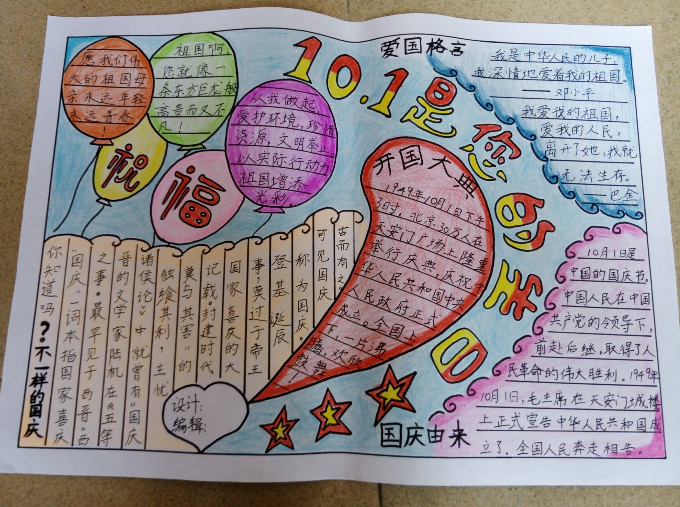 10.1是您的生日
愿我们伟
大的祖国母
亲永远年轻
永远青春
!
祖国啊,
您就像一
条东方巨龙般
高贵而又不
凡!
从我做起,
爱护环境,珍惜
资源,文明举止,
以实际行动为
祖国增添
光彩
祝
福
爱国格言
我是中华人民的儿子,
我深情地爱着我的祖国。
——邓小平
我爱我的祖国,
爱我的人民,
离开了她,我就
无法生存。
——巴金
开国大典
1949年10月1日下午
3时,北京30万人在
天安门广场上隆重
举行庆典,庆祝中
华人民共和国中央
人民政府正式
成立。全国上
下,一片沸
腾,欢欣
鼓舞!
10月1日是
中国的国庆节。
中国人民在中国
共产党的领导下,
前赴后继,取得了人
民革命的伟大胜利。1949年
10月1日,毛主席在天安门城楼
上正式宣告中华人民共和国成
立了。全国人民奔走相告。
国庆由来
你知道吗???不一样的国庆
“国庆”一词本指国家喜庆
之事。最早见于西晋。西
晋的文学家陆机在《五等
诸侯论》中就曾有“国庆
独飨其利,主忧
莫与其害”的
记载封建时代
国家喜庆的大
事莫过于帝王
登基诞辰
称为国庆。
可见国庆
古而有之
设计:
编辑: